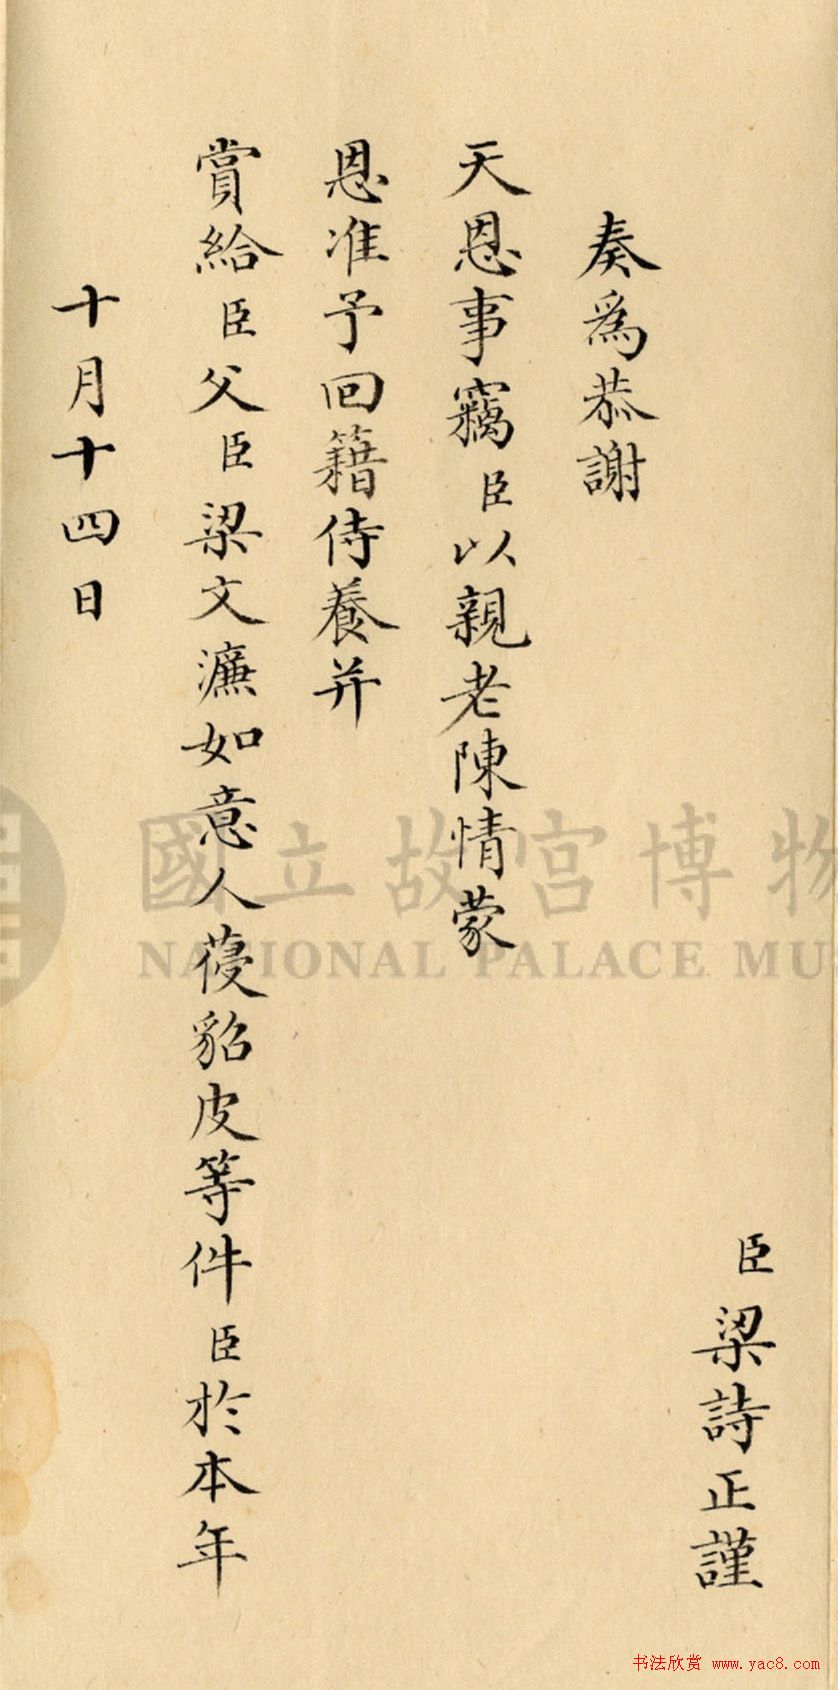 臣梁詩正謹
奏為恭謝
天恩事竊臣以親老陳情蒙
恩准予回籍侍養并
賞給臣父臣梁文濂如意人葠貂皮等件臣於本年
十月十四日
國立故宮博物
NATIONAL PALACE MUS
书法欣赏 www.yac8.com